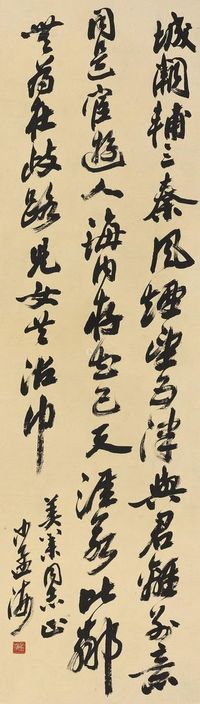 城闕輔三秦風煙望五津與君離別意
同是宦遊人海內存知己天涯若比鄰
無為在歧路兒女共沾巾
美同志正
沙孟海